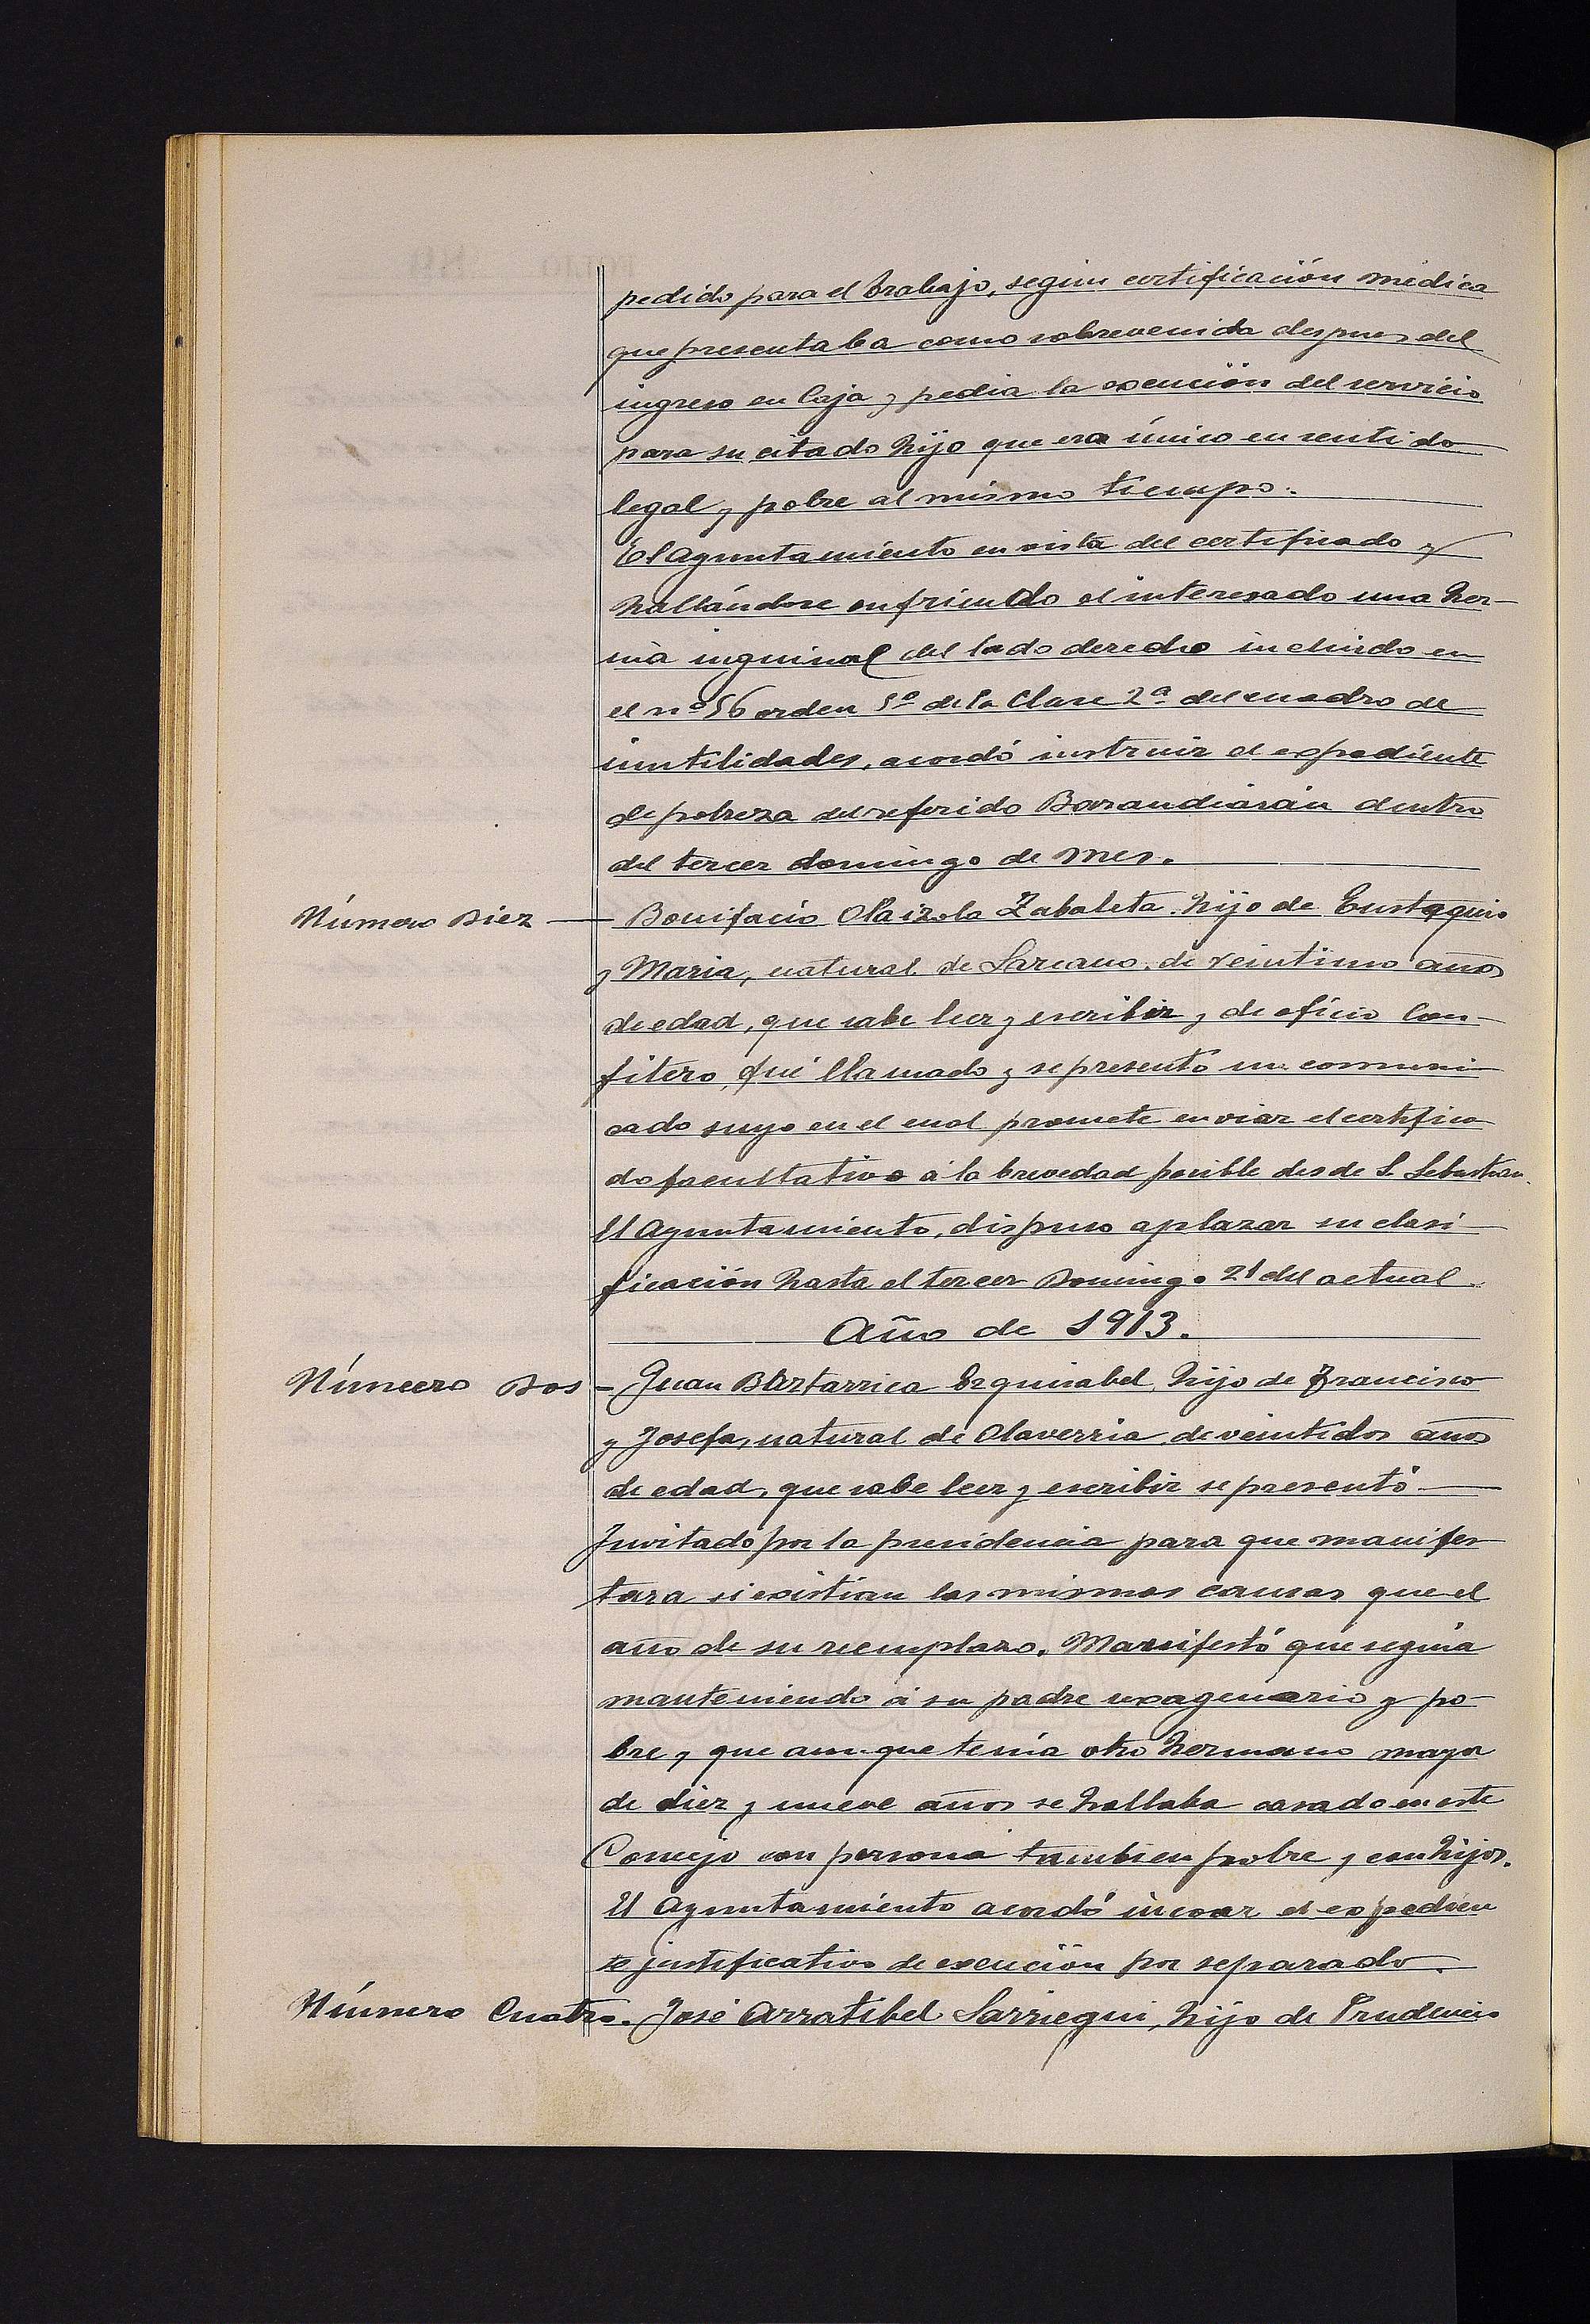 pedido para el trabajo, según certificación médica
que presentaba como sobrevenida despues del
ingreso en Caja y pedia la exención del servicio
para su citado hijo que era único en sentido
legal y pobre al mismo tiempo.
El Ayuntamiento en vista del certificado y
hallándose sufriendo el interesado una her-
nia inguinal del lado derecho incluido en
el nº 56 orden 5º de la Clase 2ª del cuadro de
inutilidades, acordó instruir el expediente
de pobreza del referido Barandiarán dentro
del tercer domingo de mes.
Número Diez — Bonifacio Olaizola Zabaleta hijo de Eustaquio
y Maria, natural de Lazcano, de veintiuno años
de edad, que sabe leer y escribir y de oficio Con-
fitero, fué llamado y se presentó un comuni
cado suyo en el cual promete enviar el certifica
do facultativo á la brevedad posible desde S. Sebastian.
El Ayuntamiento, dispuso aplazar su clasi
ficación hasta el tercer Domingo 21 del actual.
Año de 1913.
Número Dos – Juan B Aztarrica Ezquiabel, hijo de Francisco
y Josefa, natural de Olaverria, de veintidos años
de edad, que sabe leer y escribir se presentó —
Invitado por la presidencia para que manifes
tara si existian las mismas causas que el
año de su reemplazo. Manifestó que seguia
manteniendo á su padre sexagenario y po-
bre y que aunque tenía otro hermano mayor
de diez y nueve años se hallaba casado en este
Concejo con persona tambien pobre y con hijos.
El Ayuntamiento acordó incoar el expedien
te justificativo de exención por separado.
Número Cuatro. José Arratibel Sarriegui, hijo de Prudencio